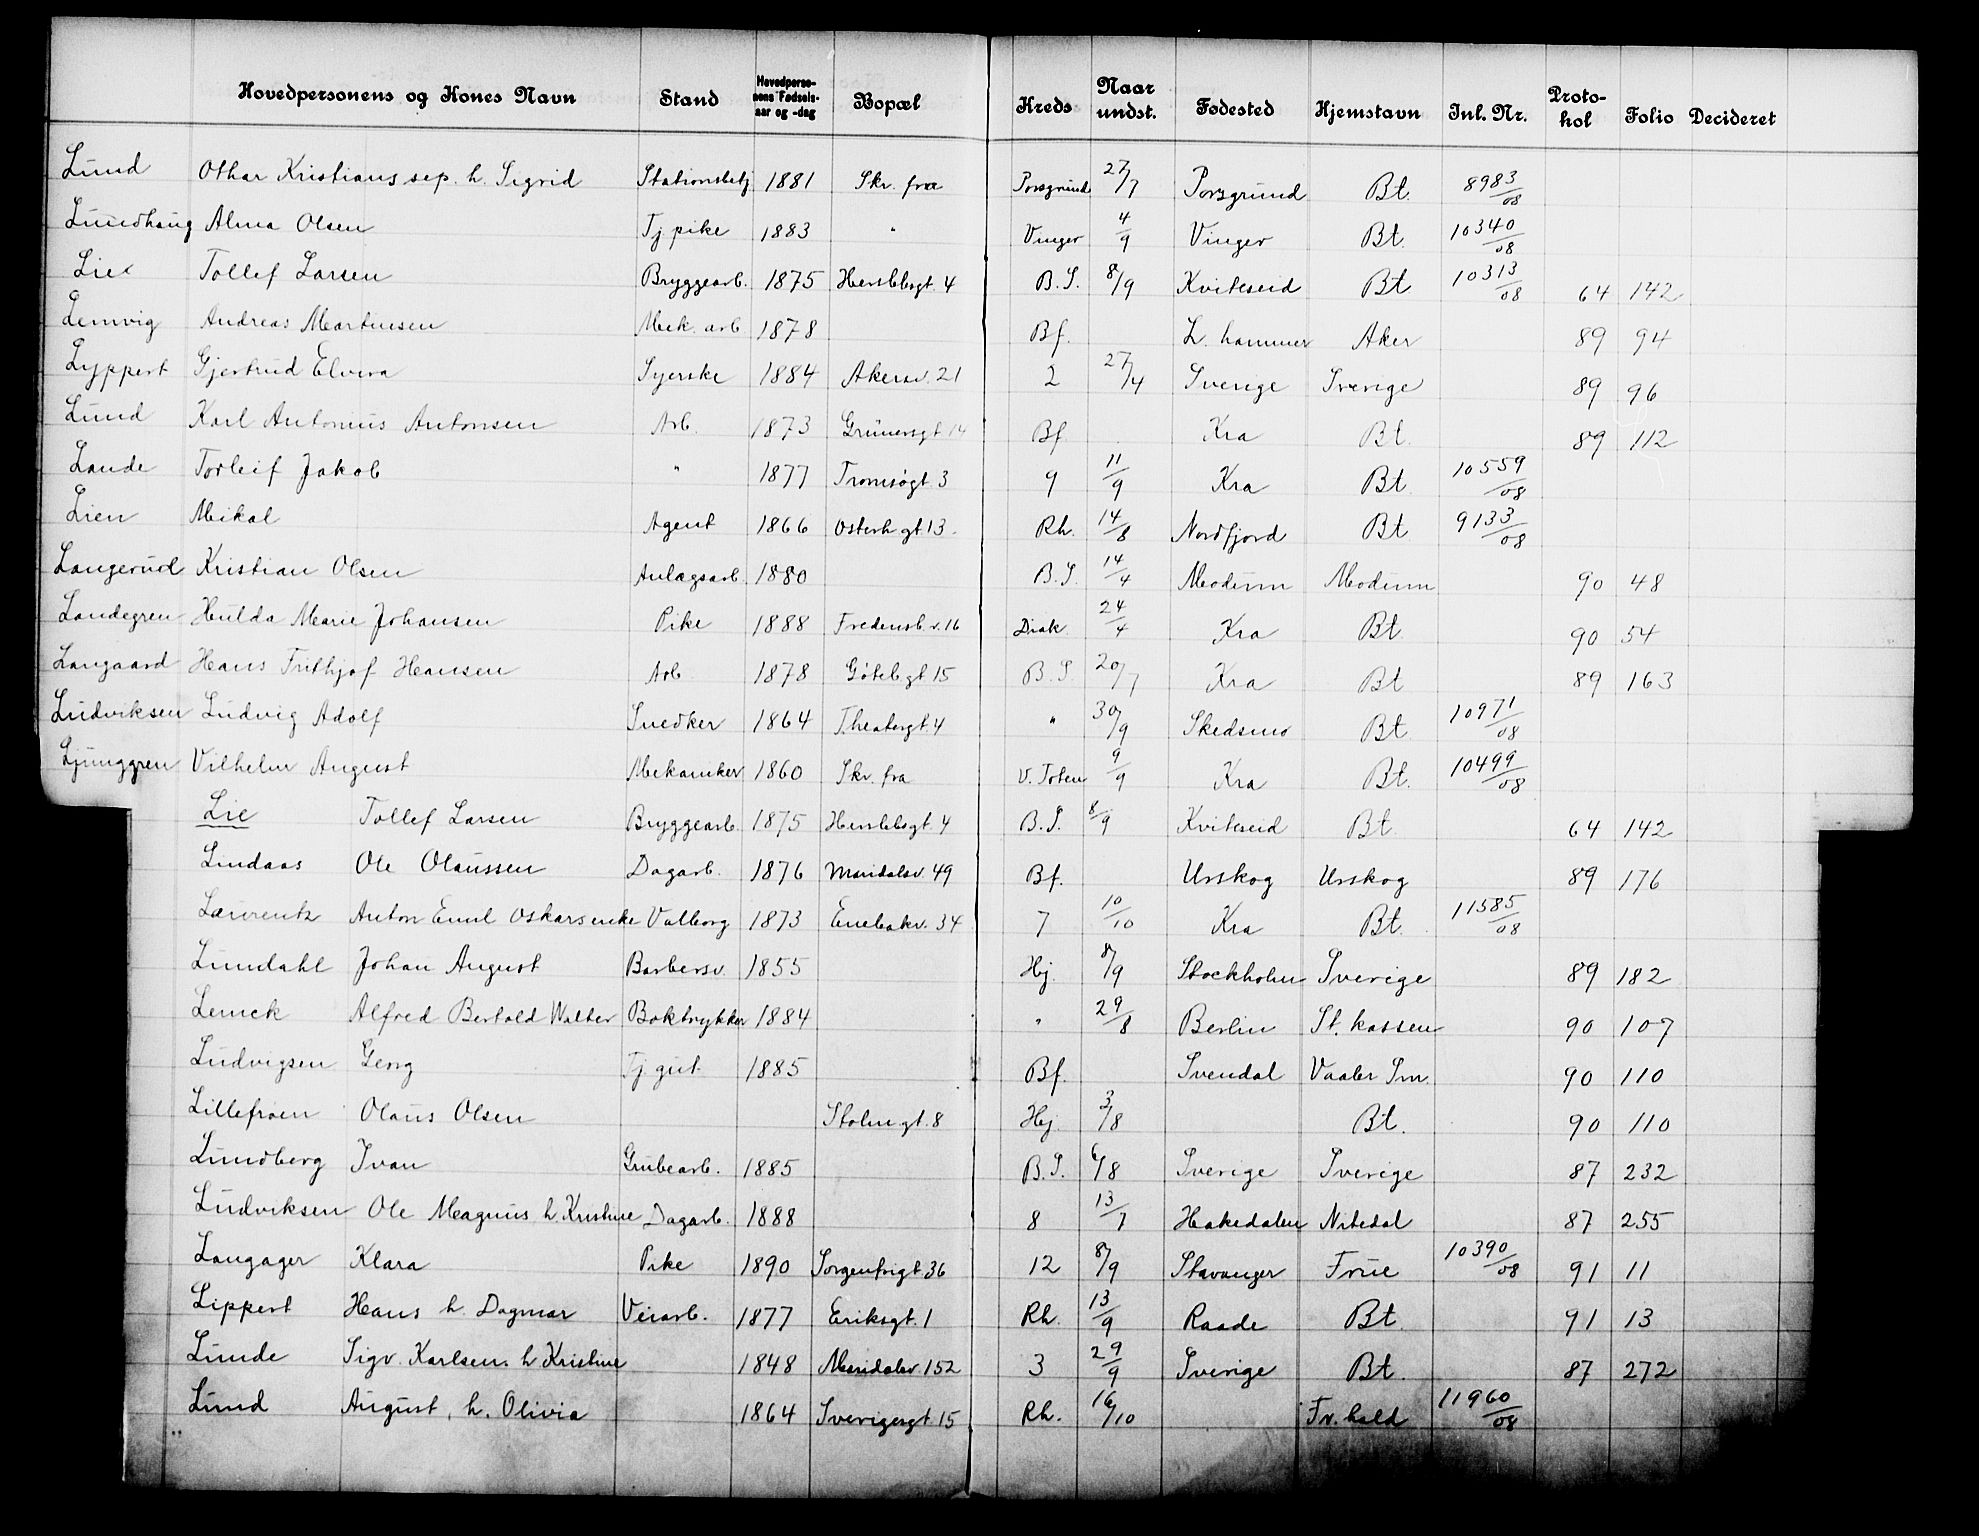 Hovedpersonens og Kones Navn Stand Hovedpersonens Fødselsaar og -dag Bopæl Kreds Naar undst. Fødested Hjemstavn Inl. Nr. Protokol Folio Decideret
Lund Othar Kristians sep. h. Sigrid Stationsbetj 1881 Skr. fra Porsgrund 27/7 Porsgrund Bt. 8983/08
Lundhaug Alma Olsen Tj. pike 1883 " Vinger 4/9 Vinger Bt. 10340/08
Lie Tollef Larsen Bryggearb. 1875 Herslebsgt. 4 B.S. 8/9 Kviteseid Bt 10313/08 64 142
Lemvig Andreas Martinsen Mek. arb. 1878 Bf. L. hammer Aker 89 94
Lyppert Gjertrud Elvira Syerske 1884 Akersv. 21 2 27/4 Sverige Sverige 89 96
Lund Karl Antonius Antonsen Arb. 1873 Grünersgt 14 Bf. Kra Bt. 89 112
Lande Torleif Jakob " 1877 Tromsøgt. 3 9 11/9 Kra Bt. 10559/08
Lien Mikal Agent 1866 Osterh. gt 13. Rh. 14/8 Nordfjord Bt 9133/08
Langerud Kristian Olsen Anlægsarb. 1880 B.S. 14/4 Modum Modum 90 48
Landegren Hulda Marie Johansen Pike 1888 Fredensb. v. 16 Diak. 24/4 Kra Bt. 90 54
Langaard Hans Frithjof Hansen Arb. 1878 Göteb. gt 15 B.S. 20/7 Kra Bt 89 163
Ludviksen Ludvig Adolf Snedker 1864 Theatergt. 4 " 30/9 Skedsmo Bt. 10971/08
Ljunggren Vilhelm August Mekaniker 1860 Skr. fra V. Toten 9/9 Kra Bt. 10499/08
Lie Tollef Larsen Bryggearb. 1875 Herslebsgt. 4 B.S. 8/9 Kviteseid Bt. 64 142
Lindaas Ole Olaussen Dagarb. 1876 Maridalsv. 49 Bf. Urskog Urskog 89 176
Laurentz Anton Emil Oskars enke Valborg 1873 Enebakv. 34 7 10/10 Kra Bt. 11585/08
Lundahl Johan August Barbersv. 1855 Hj. 8/9 Stockholm Sverige 89 182
Lemck Alfred Bertold Walter Boktrykker 1884 " 29/8 Berlin St. kassen 90 107
Ludvigsen Georg Tj. gut 1885 Bf. Svendal Vaaler Sm. 90 110
Lillefroen Olaus Olsen Stolm gt. 8 Hj. 3/8 Bt. 90 110
Lundberg Ivan Grubearb. 1885 B.S. 6/8 Sverige Sverige 87 232
Ludviksen Ole Magnus h. Kristine Dagarb. 1888 8 13/7 Hakedalen Nitedal 87 255
Langager Klara Pike 1890 Sorgenfrigt 36 12 8/9 Stavanger Frue 10390/08 91 11
Lippert Hans h. Dagmar Veiarb. 1877 Eriksgt. 1 Rh. 13/9 Raade Bt. 91 13
Lunde Sigv. Karlsen h Kristine 1848 Maridalsv. 152 3 29/9 Sverige Bt. 87 272
Lund August, h. Olivia 1864 Sverigesgt. 15 Rh. 16/10 Fr. hald 11960/08